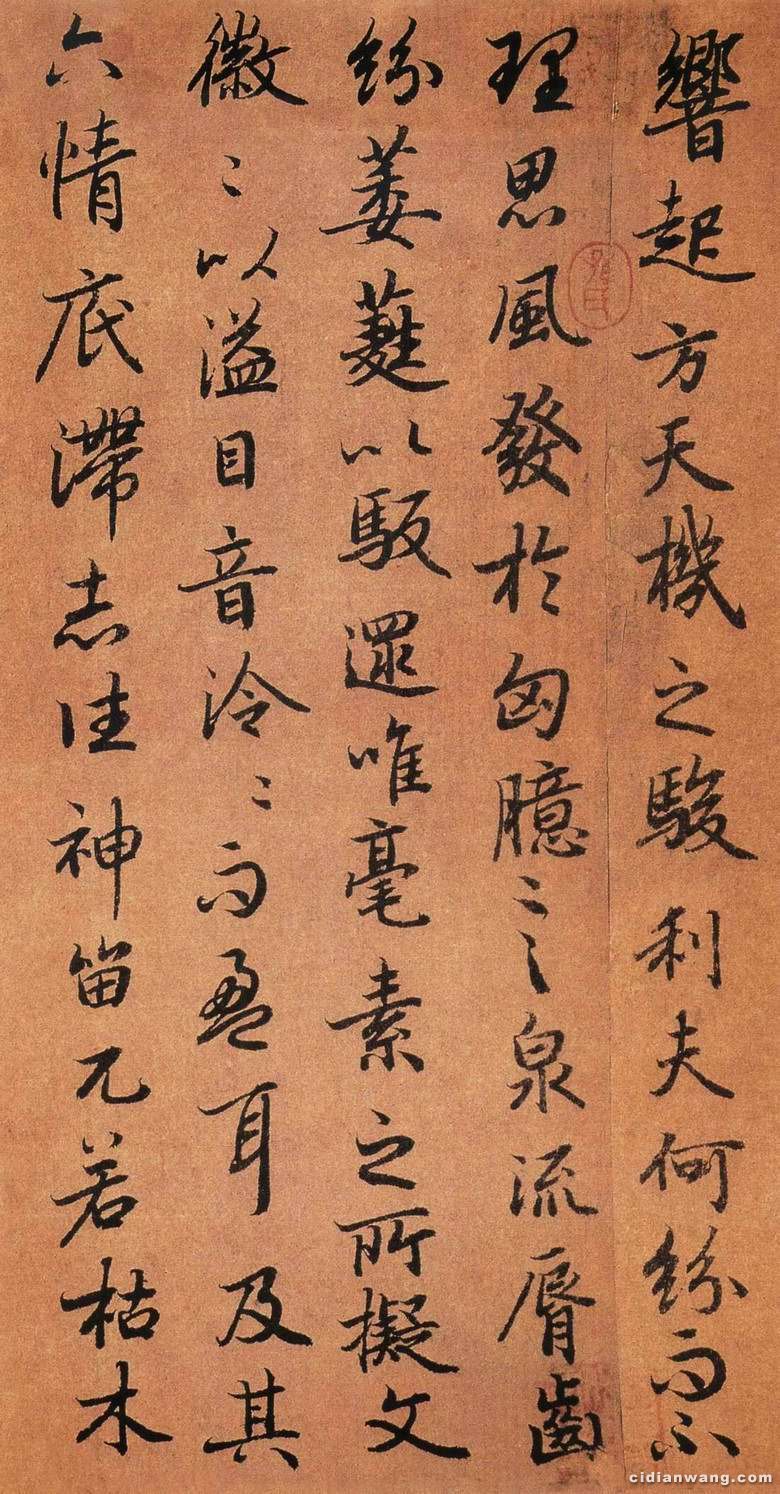 響起方天機之駿利夫何紛而不
理思風發於匈臆言泉流脣齒
紛萎蕤以馺遝唯毫素之所擬文
徽〻以溢目音泠〻而盈耳及其
六情底滯志往神留兀若枯木
cidianwang.com